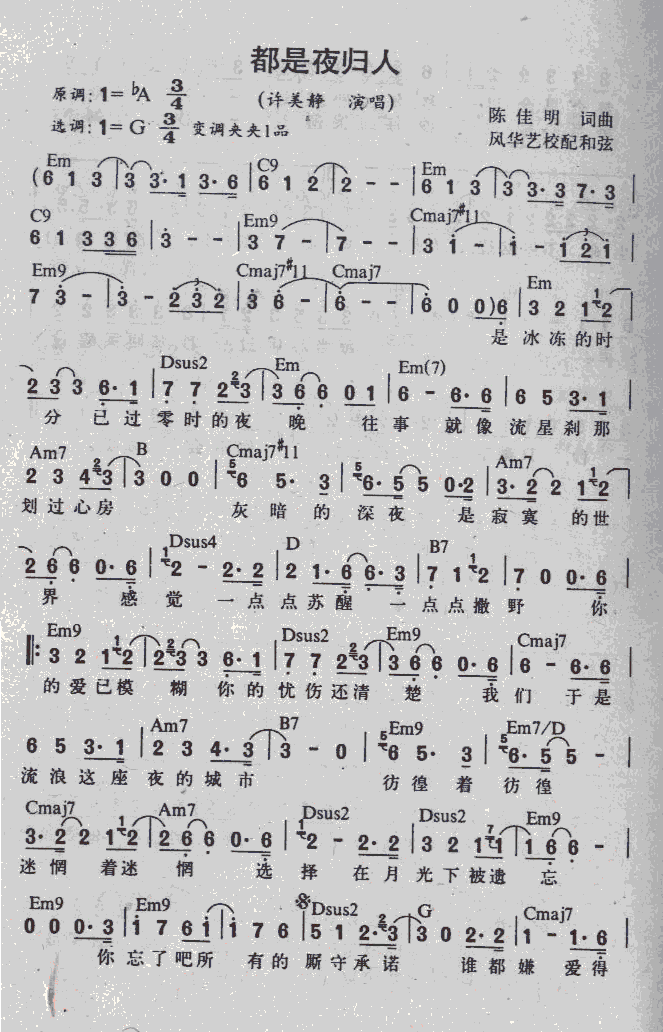 都是夜归人
原调: 1= ♭A 3/4 (许美静 演唱)
选调: 1= G 3/4 变调夹夹1品 陈佳明 词曲
风华艺校配和弦
Em C9 Em
(6 1 3 | 3 3· 1 3· 6 | 6 1 2 | 2 - - | 6 1 3 | 3 3· 3 7· 3 |
C9 Em9 Cmaj7#11
6 1 3 3 6 | 3 - - | 3 7 - | 7 - - | 3 1 - | 1 - 1 2 1 |
Em9 Cmaj7#11 Cmaj7 Em
7 3 - | 3 - 2 3 2 | 3 6 - | 6 - - | 6 0 0) 6 | 3 2 1 2 |
是 冰 冻 的 时
Dsus2 Em Em(7)
2 3 3 6· 1 | 7 7 2 3 | 3 6 6 0 1 | 6 - 6· 6 | 6 5 3· 1 |
分 已 过 零 时 的 夜 晚 往 事 就 像 流 星 刹 那
Am7 B Cmaj7#11 Am7
2 3 4 3 | 3 0 0 | 6 5· 3 | 6· 5 5 0·2 | 3· 2 2 1 2 |
划 过 心 房 灰 暗 的 深 夜 是 寂 寞 的 世
Dsus4 D B7
2 6 6 0· 6 | 2 - 2· 2 | 2 1· 6 6· 3 | 7 1 2 | 7 0 0· 6 |
界 感 觉 一 点 点 苏 醒 一 点 点 撒 野 你
Em9 Dsus2 Em9 Cmaj7
3 2 1 2 | 2 3 3 6· 1 | 7 7 2 3 | 3 6 6 0· 6 | 6 - 6· 6 |
的 爱 已 模 糊 你 的 忧 伤 还 清 楚 我 们 于 是
Am7 B7 Em9 Em7/D
6 5 3· 1 | 2 3 4· 3 | 3 - 0 | 6 5· 3 | 6· 5 5 - |
流 浪 这 座 夜 的 城 市 彷 徨 着 彷 徨
Cmaj7 Am7 Dsus2 Dsus2 Em9
3· 2 2 1 2 | 2 6 6 0· 6 | 2 - 2· 2 | 3 2 1 1 | 1 6 6 - |
迷 惘 着 迷 惘 选 择 在 月 光 下 被 遗 忘
Em9 Em9 Dsus2 G Cmaj7
0 0 0· 3 | 1 7 6 1 | 1 7 6 | 5 1 2· 3 | 3 0 2· 2 | 1 - 1· 6 |
你 忘 了 吧 所 有 的 厮 守 承 诺 谁 都 嫌 爱 得